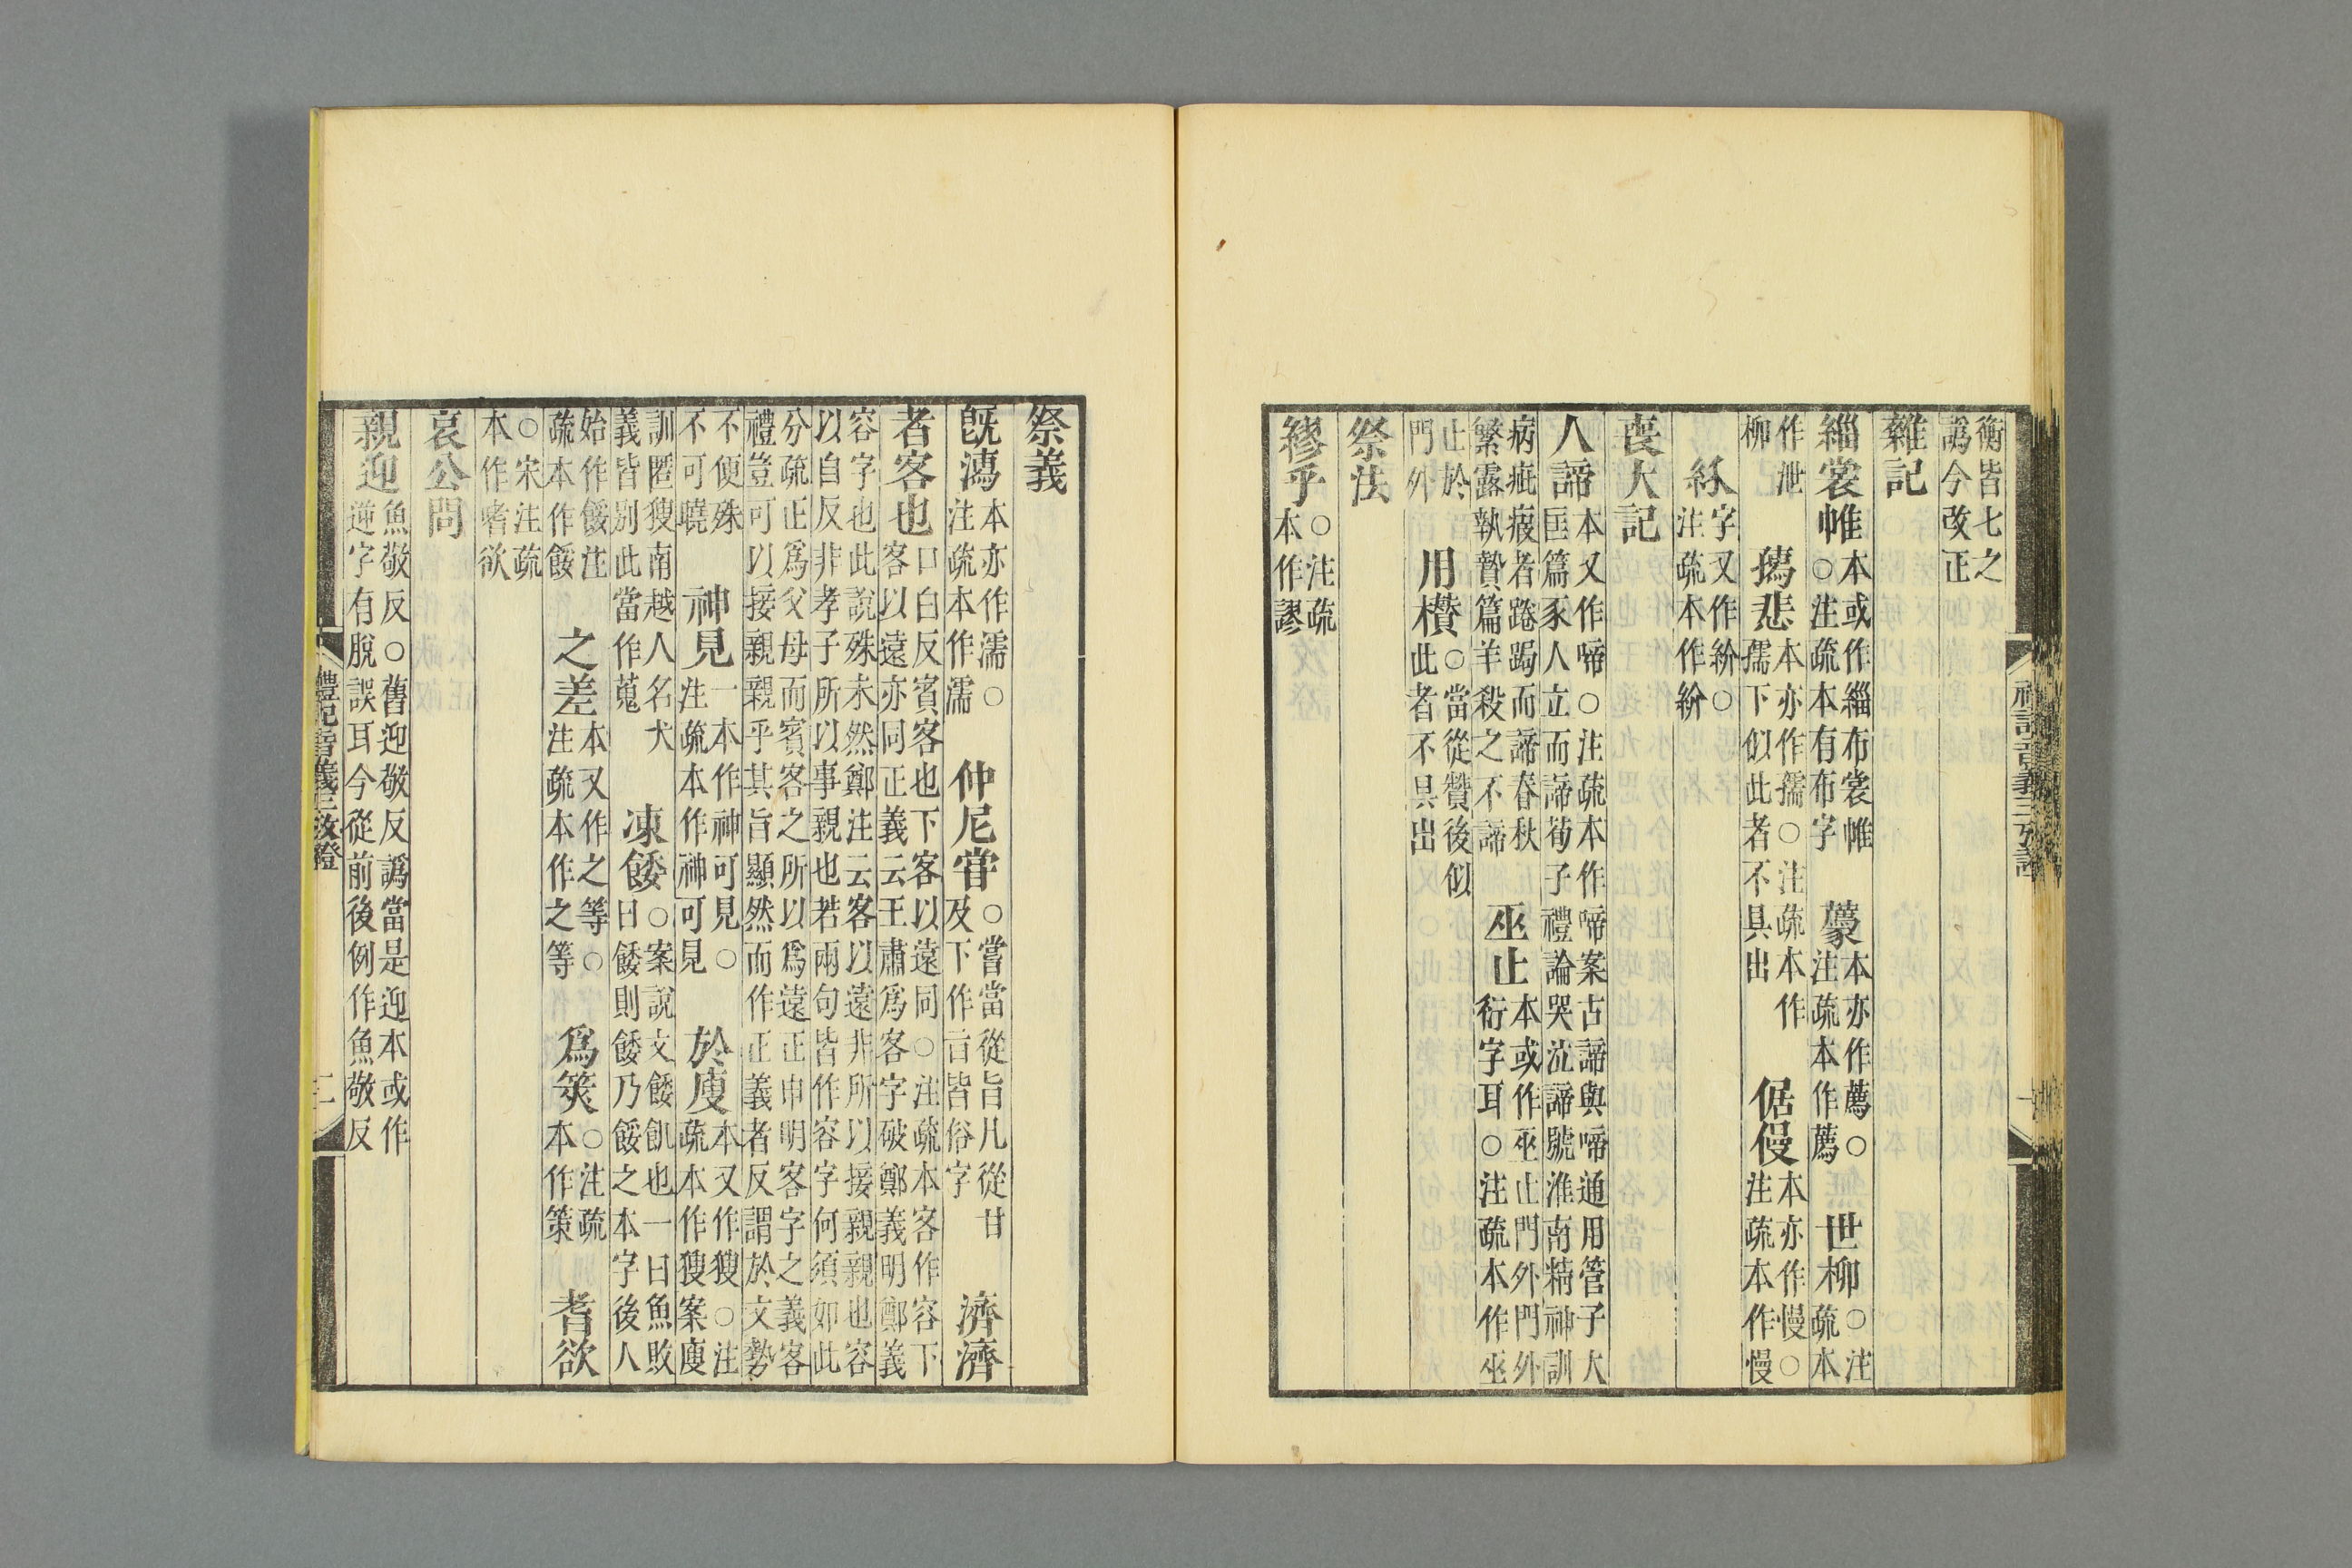 衡皆七之
譌今改正
雜記
緇裳帷 本或作緇布裳帷
○注疏本有布字 虆 本亦作藨○
注疏本作藨 世柳 ○注
疏本
作泄
柳 㩗悲 本亦作孺○注疏本作
孺下似此者不具出 倨㑧 本亦作慢○
注疏本作慢
紁 字又作紛○
注疏本作紛
喪大記
人諦 本又作啼○注疏本作啼案古諦與啼通用管子大
匡篇豕人立而諦荀子禮論哭泣諦號淮南精神訓
病疵疲者踡跼而諦春秋
繁露執贄篇羊殺之不諦 巫止 本或作巫止門外門外
衍字耳○注疏本作巫
止於
門外 用櫕 ○當從贊後似
此者不具出
祭法
繆乎 ○注疏
本作謬
祭義
旣濡 本亦作濡○
注疏本作濡 仲尼甞 ○當當從旨凡從甘
及下作盲皆俗字 濟濟
者客也 口白反賓客也下客以遠同○注疏本客作容下
客以遠亦同正義云王肅爲客字破鄭義明鄭義
容字也此說殊未然鄭注云客以遠非所以接親親也容
以自反非孝子所以事親也若兩句皆作容字何須如此
分疏正爲父母而賓客之所以爲遠正申明客字之義客
禮豈可以接親親乎其旨顯然而作正義者反謂於文勢
不便殊
不可曉 神見 一本作神可見○
注疏本作神可見 於廋 本又作獀○注
疏本作獀案廋
訓匿獀南越人名犬
義皆別此當作蒐 凍餧 ○案說文餧飢也一曰魚敗
曰餧則餧乃餒之本字後人
始作餒注
疏本作餒 之差 本又作之等○
注疏本作之等 爲筴 ○注疏
本作策 耆欲
○宋注疏
本作嗜欲
哀公問
親迎 魚敬反○舊迎敬反譌當是迎本或作
逆字有脫誤耳今從前後例作魚敬反
禮記音義三攷證
二